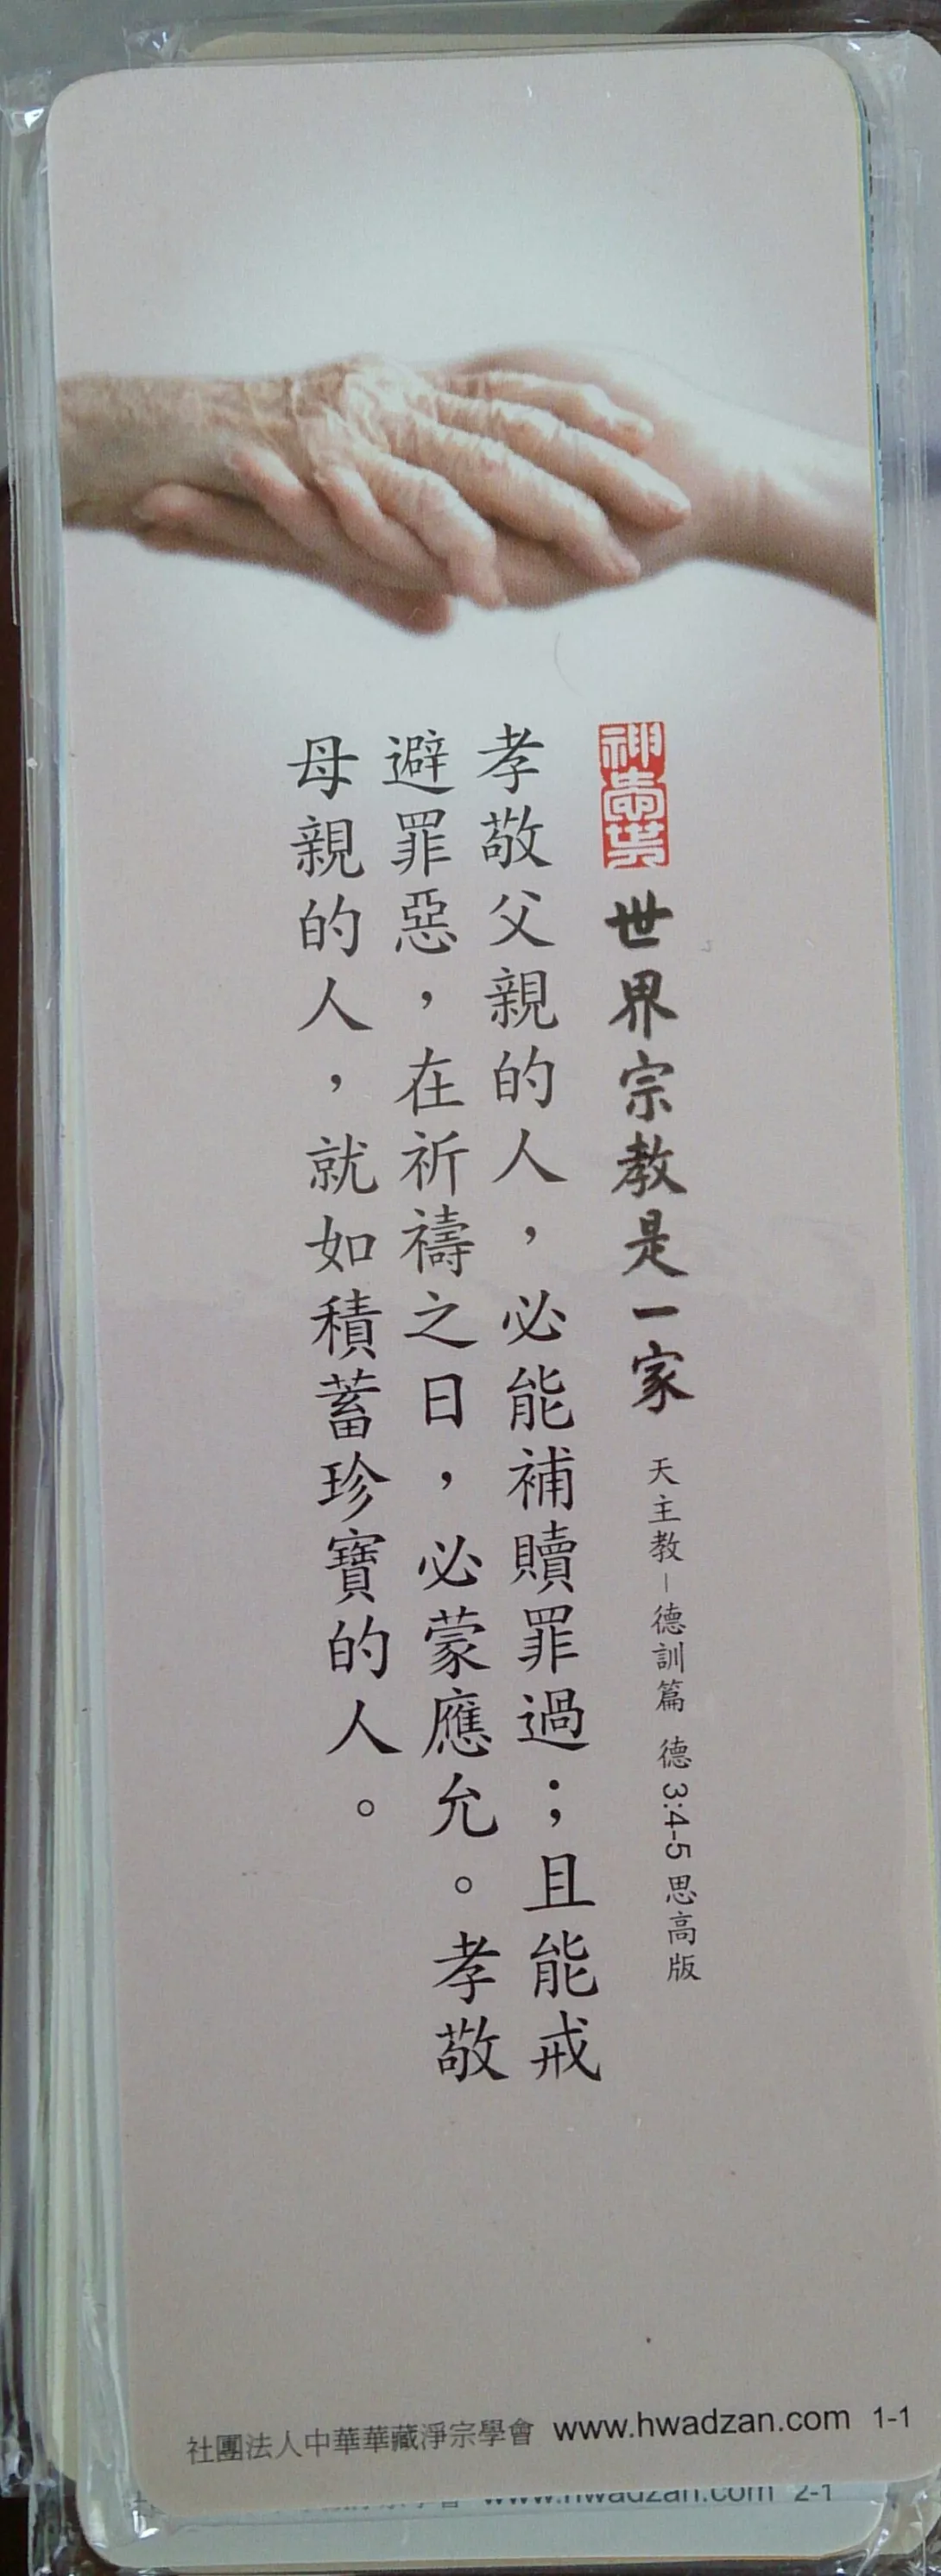 神愛世人
世界宗教是一家 天主教－德訓篇 德3:4-5 思高版
孝敬父親的人，必能補贖罪過；且能戒
避罪惡，在祈禱之日，必蒙應允。孝敬
母親的人，就如積蓄珍寶的人。
社團法人中華華藏淨宗學會 www.hwadzan.com 1-1
www.hwadzan.com 2-1